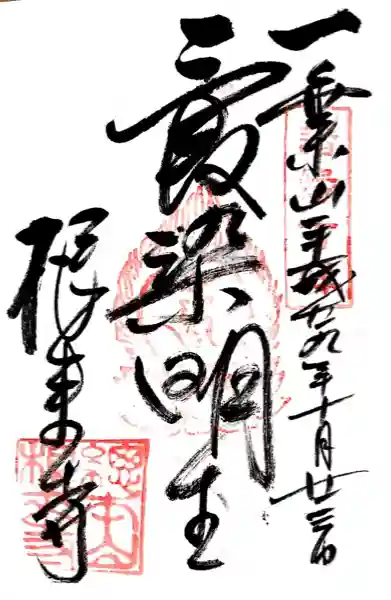 一乗山 平成廿九年十月廿三日
愛染明王
根来寺